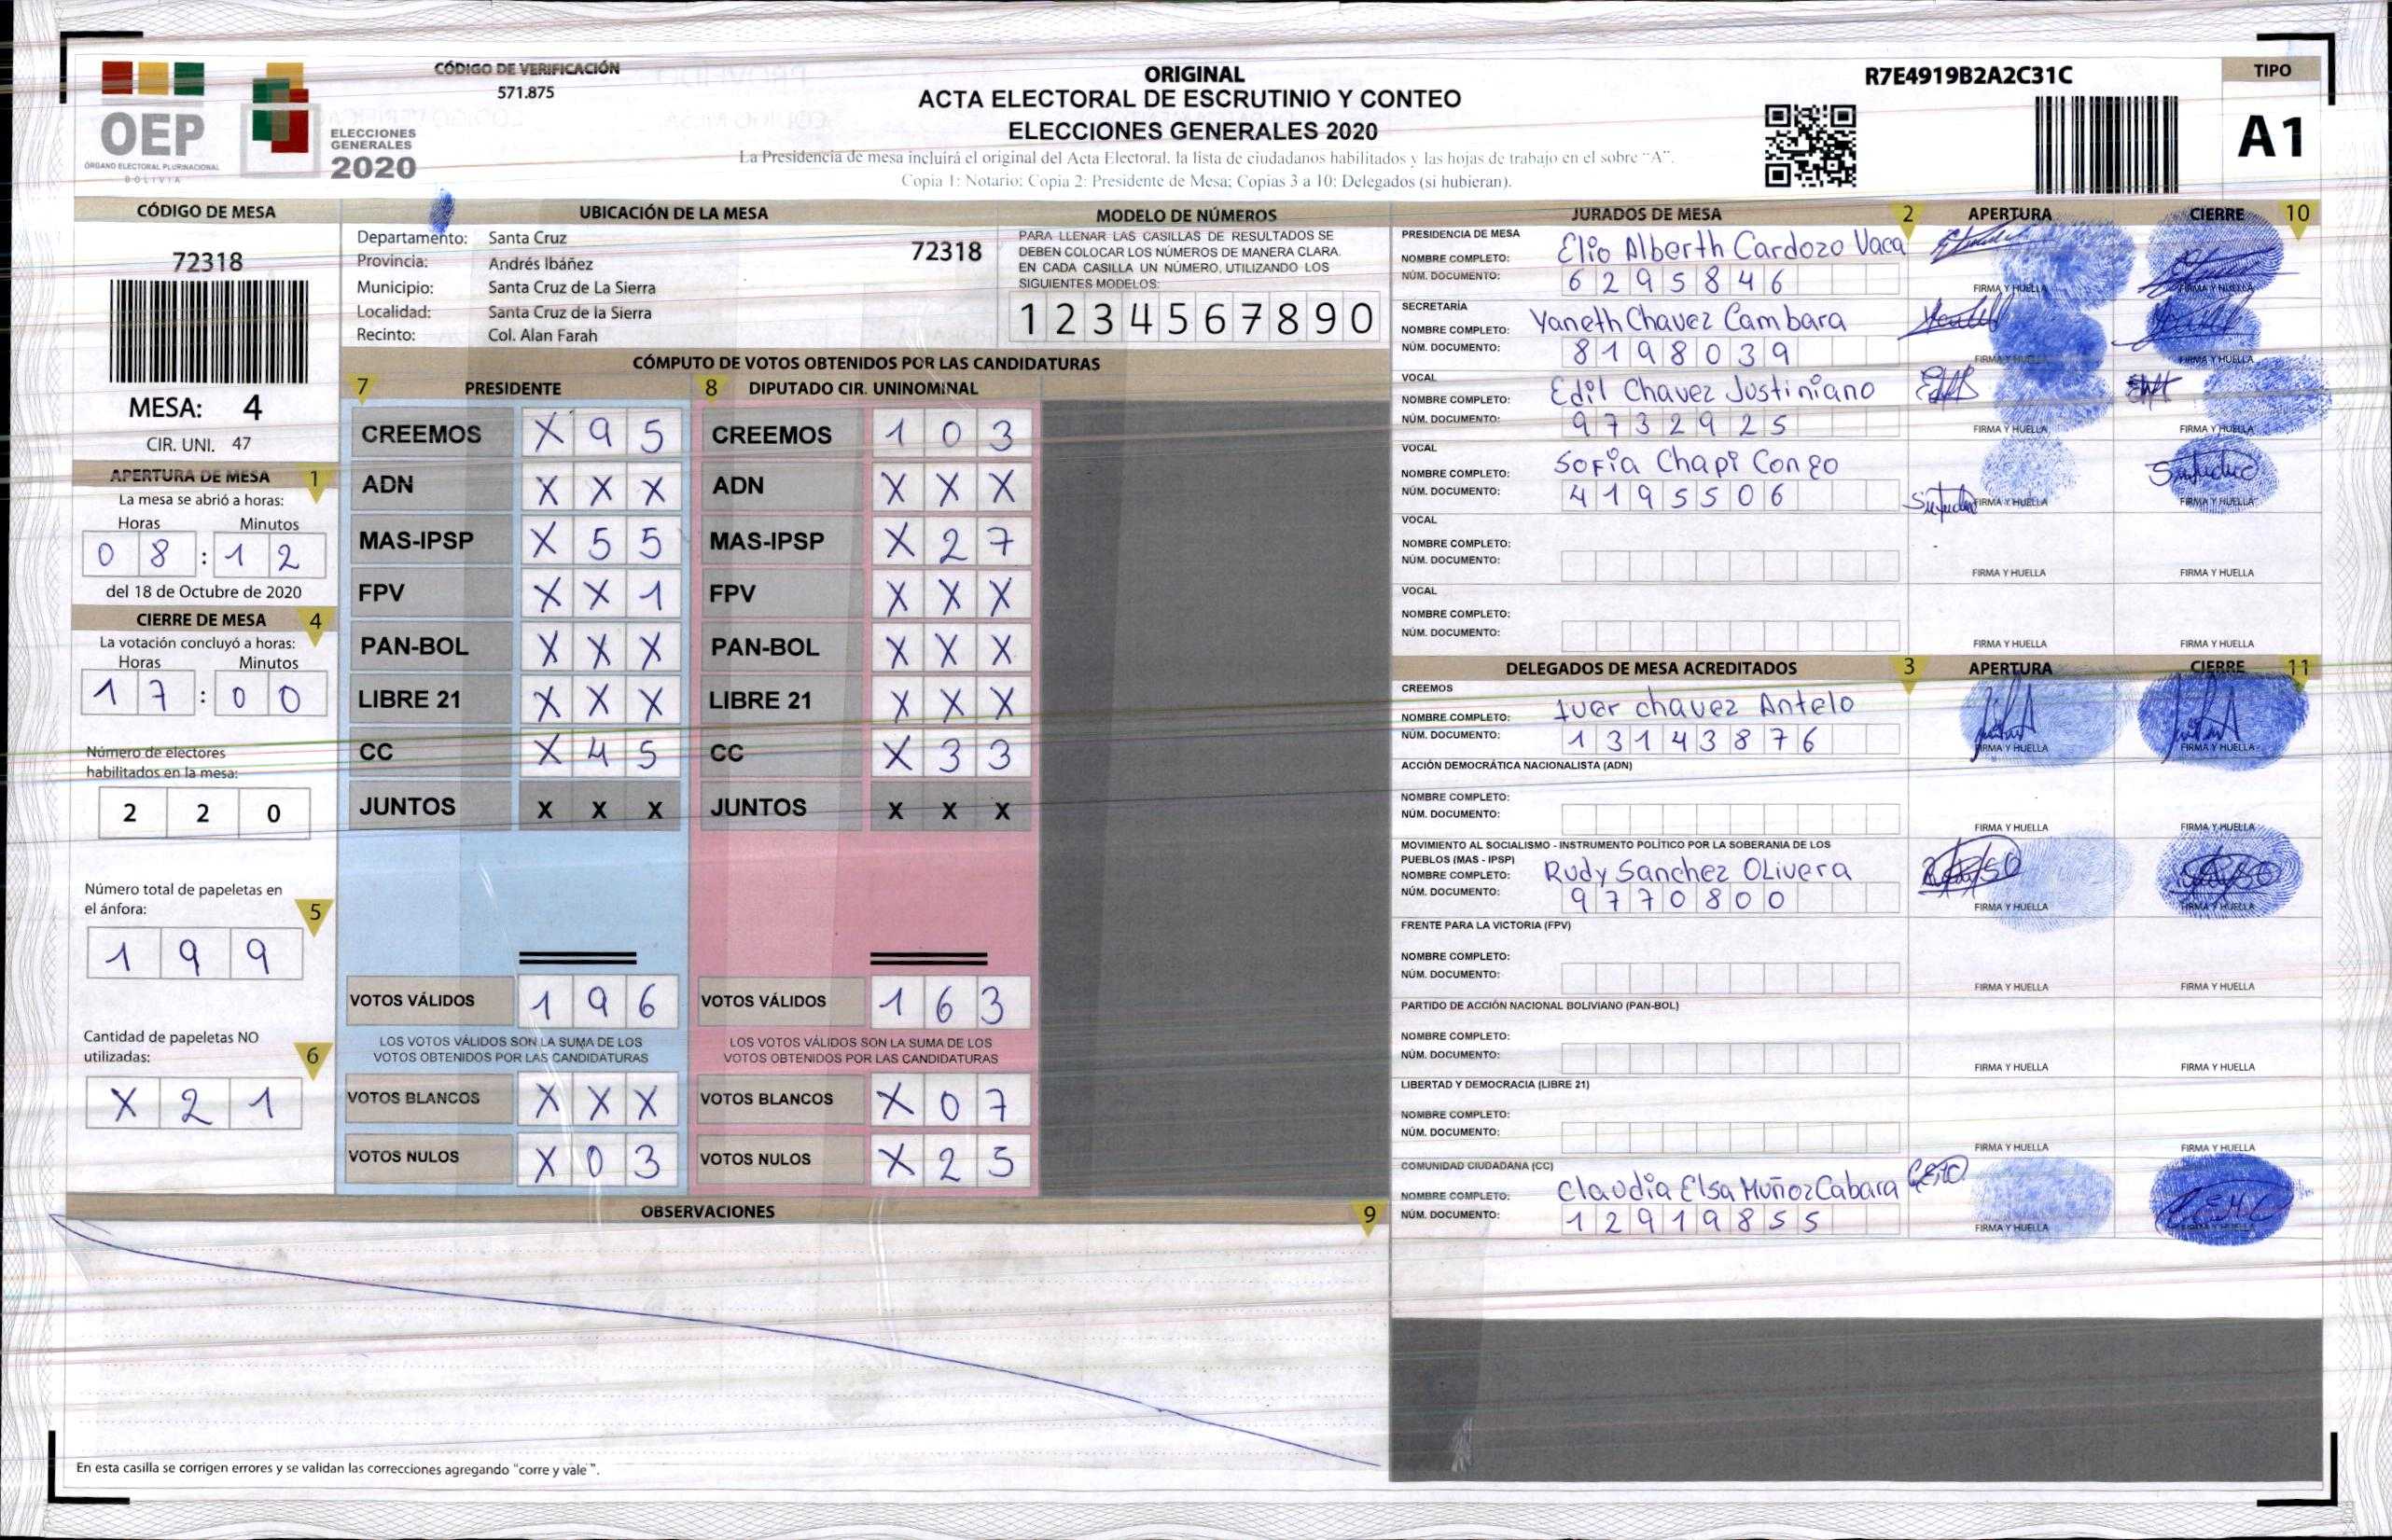 OEP
ÓRGANO ELECTORAL PLURINACIONAL
BOLIVIA
ELECCIONES
GENERALES
2020
CÓDIGO DE VERIFICACIÓN
571.875
ORIGINAL
ACTA ELECTORAL DE ESCRUTINIO Y CONTEO
ELECCIONES GENERALES 2020
La Presidencia de mesa incluirá el original del Acta Electoral, la lista de ciudadanos habilitados y las hojas de trabajo en el sobre "A".
Copia 1: Notario; Copia 2: Presidente de Mesa; Copias 3 a 10: Delegados (si hubieran).
R7E4919B2A2C31C
TIPO
A1
CÓDIGO DE MESA
72318
MESA: 4
CIR. UNI. 47
APERTURA DE MESA 1
La mesa se abrió a horas:
Horas Minutos
0 8 : 1 2
del 18 de Octubre de 2020
CIERRE DE MESA 4
La votación concluyó a horas:
Horas Minutos
1 7 : 0 0
Número de electores
habilitados en la mesa:
2 2 0
Número total de papeletas en
el ánfora: 5
1 9 9
Cantidad de papeletas NO
utilizadas: 6
X 2 1
UBICACIÓN DE LA MESA
Departamento: Santa Cruz
Provincia: Andrés Ibáñez
Municipio: Santa Cruz de La Sierra
Localidad: Santa Cruz de la Sierra
Recinto: Col. Alan Farah
72318
MODELO DE NÚMEROS
PARA LLENAR LAS CASILLAS DE RESULTADOS SE
DEBEN COLOCAR LOS NÚMEROS DE MANERA CLARA.
EN CADA CASILLA UN NÚMERO, UTILIZANDO LOS
SIGUIENTES MODELOS:
1 2 3 4 5 6 7 8 9 0
CÓMPUTO DE VOTOS OBTENIDOS POR LAS CANDIDATURAS
7 PRESIDENTE 8 DIPUTADO CIR. UNINOMINAL
CREEMOS X 9 5 CREEMOS 1 0 3
ADN X X X ADN X X X
MAS-IPSP X 5 5 MAS-IPSP X 2 7
FPV X X 1 FPV X X X
PAN-BOL X X X PAN-BOL X X X
LIBRE 21 X X X LIBRE 21 X X X
CC X 4 5 CC X 3 3
JUNTOS X X X JUNTOS X X X
VOTOS VÁLIDOS 1 9 6 VOTOS VÁLIDOS 1 6 3
LOS VOTOS VÁLIDOS SON LA SUMA DE LOS LOS VOTOS VÁLIDOS SON LA SUMA DE LOS
VOTOS OBTENIDOS POR LAS CANDIDATURAS VOTOS OBTENIDOS POR LAS CANDIDATURAS
VOTOS BLANCOS X X X VOTOS BLANCOS X 0 7
VOTOS NULOS X 0 3 VOTOS NULOS X 2 5
OBSERVACIONES 9
En esta casilla se corrigen errores y se validan las correcciones agregando "corre y vale".
JURADOS DE MESA 2 APERTURA CIERRE 10
PRESIDENCIA DE MESA
NOMBRE COMPLETO: Elio Alberth Cardozo Vaca
NÚM. DOCUMENTO: 6 2 9 5 8 4 6
FIRMA Y HUELLA FIRMA Y HUELLA
SECRETARÍA
NOMBRE COMPLETO: Yaneth Chavez Cambara
NÚM. DOCUMENTO: 8 1 9 8 0 3 9
FIRMA Y HUELLA FIRMA Y HUELLA
VOCAL
NOMBRE COMPLETO: Edil Chavez Justiniano
NÚM. DOCUMENTO: 9 7 3 2 9 2 5
FIRMA Y HUELLA FIRMA Y HUELLA
VOCAL
NOMBRE COMPLETO: Sofia Chapi Congo
NÚM. DOCUMENTO: 4 1 9 5 5 0 6
FIRMA Y HUELLA FIRMA Y HUELLA
VOCAL
NOMBRE COMPLETO:
NÚM. DOCUMENTO:
FIRMA Y HUELLA FIRMA Y HUELLA
VOCAL
NOMBRE COMPLETO:
NÚM. DOCUMENTO:
FIRMA Y HUELLA FIRMA Y HUELLA
DELEGADOS DE MESA ACREDITADOS 3 APERTURA CIERRE 11
CREEMOS
NOMBRE COMPLETO: Iver chavez Antelo
NÚM. DOCUMENTO: 1 3 1 4 3 8 7 6
FIRMA Y HUELLA FIRMA Y HUELLA
ACCIÓN DEMOCRÁTICA NACIONALISTA (ADN)
NOMBRE COMPLETO:
NÚM. DOCUMENTO:
FIRMA Y HUELLA FIRMA Y HUELLA
MOVIMIENTO AL SOCIALISMO - INSTRUMENTO POLÍTICO POR LA SOBERANIA DE LOS
PUEBLOS (MAS - IPSP)
NOMBRE COMPLETO: Rudy Sanchez Olivera
NÚM. DOCUMENTO: 9 7 7 0 8 0 0
FIRMA Y HUELLA FIRMA Y HUELLA
FRENTE PARA LA VICTORIA (FPV)
NOMBRE COMPLETO:
NÚM. DOCUMENTO:
FIRMA Y HUELLA FIRMA Y HUELLA
PARTIDO DE ACCIÓN NACIONAL BOLIVIANO (PAN-BOL)
NOMBRE COMPLETO:
NÚM. DOCUMENTO:
FIRMA Y HUELLA FIRMA Y HUELLA
LIBERTAD Y DEMOCRACIA (LIBRE 21)
NOMBRE COMPLETO:
NÚM. DOCUMENTO:
FIRMA Y HUELLA FIRMA Y HUELLA
COMUNIDAD CIUDADANA (CC)
NOMBRE COMPLETO: Claudia Elsa Muñoz Cabara
NÚM. DOCUMENTO: 1 2 9 1 9 8 5 5
FIRMA Y HUELLA FIRMA Y HUELLA